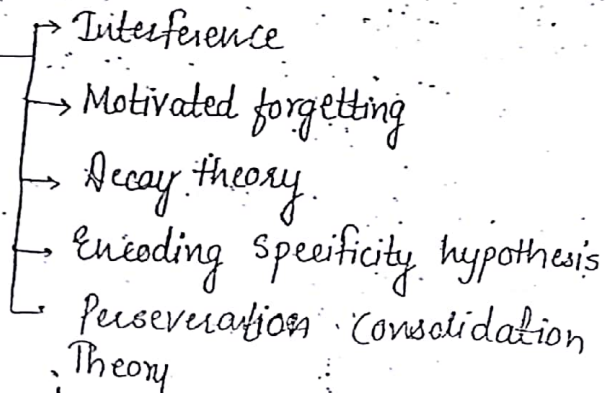 Interference
Motivated forgetting
Decay theory.
Encoding specificity hypothesis
Perseveration consolidation
Theory